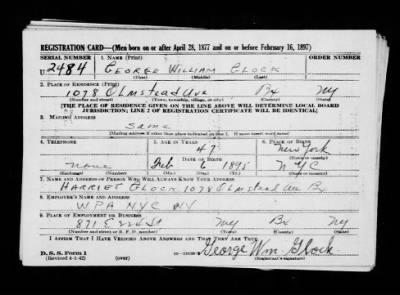 REGISTRATION CARD—(Men born on or after April 28, 1877 and on or before February 16, 1897)
SERIAL NUMBER 1. NAME (Print) ORDER NUMBER
U 2484 GEORGE WILLIAM GLOCK
(First) (Middle) (Last)
2. PLACE OF RESIDENCE (Print)
1078 Olmstead Ave Bx NY
(Number and street) (Town, township, village, or city) (County) (State)
[THE PLACE OF RESIDENCE GIVEN ON THE LINE ABOVE WILL DETERMINE LOCAL BOARD
JURISDICTION; LINE 2 OF REGISTRATION CERTIFICATE WILL BE IDENTICAL]
3. MAILING ADDRESS
Same
[Mailing address if other than place indicated on line 2. If same insert word same]
4. TELEPHONE 5. AGE IN YEARS 6. PLACE OF BIRTH
47 New York
DATE OF BIRTH
None Feb 6 1895 NYC
(Exchange) (Number) (Mo.) (Day) (Yr.) (State or country)
7. NAME AND ADDRESS OF PERSON WHO WILL ALWAYS KNOW YOUR ADDRESS
HARRIET GLOCK 1078 Olmstead Ave Bx
8. EMPLOYER'S NAME AND ADDRESS
WPA NYC NY
9. PLACE OF EMPLOYMENT OR BUSINESS
871 E St NY Bx NY
(Number and street or R. F. D. number) (Town) (County) (State)
I AFFIRM THAT I HAVE VERIFIED ABOVE ANSWERS AND THAT THEY ARE TRUE.
D. S. S. Form 1
(Revised 4-1-42) (over) (Registrant's signature)
George Wm. Glock